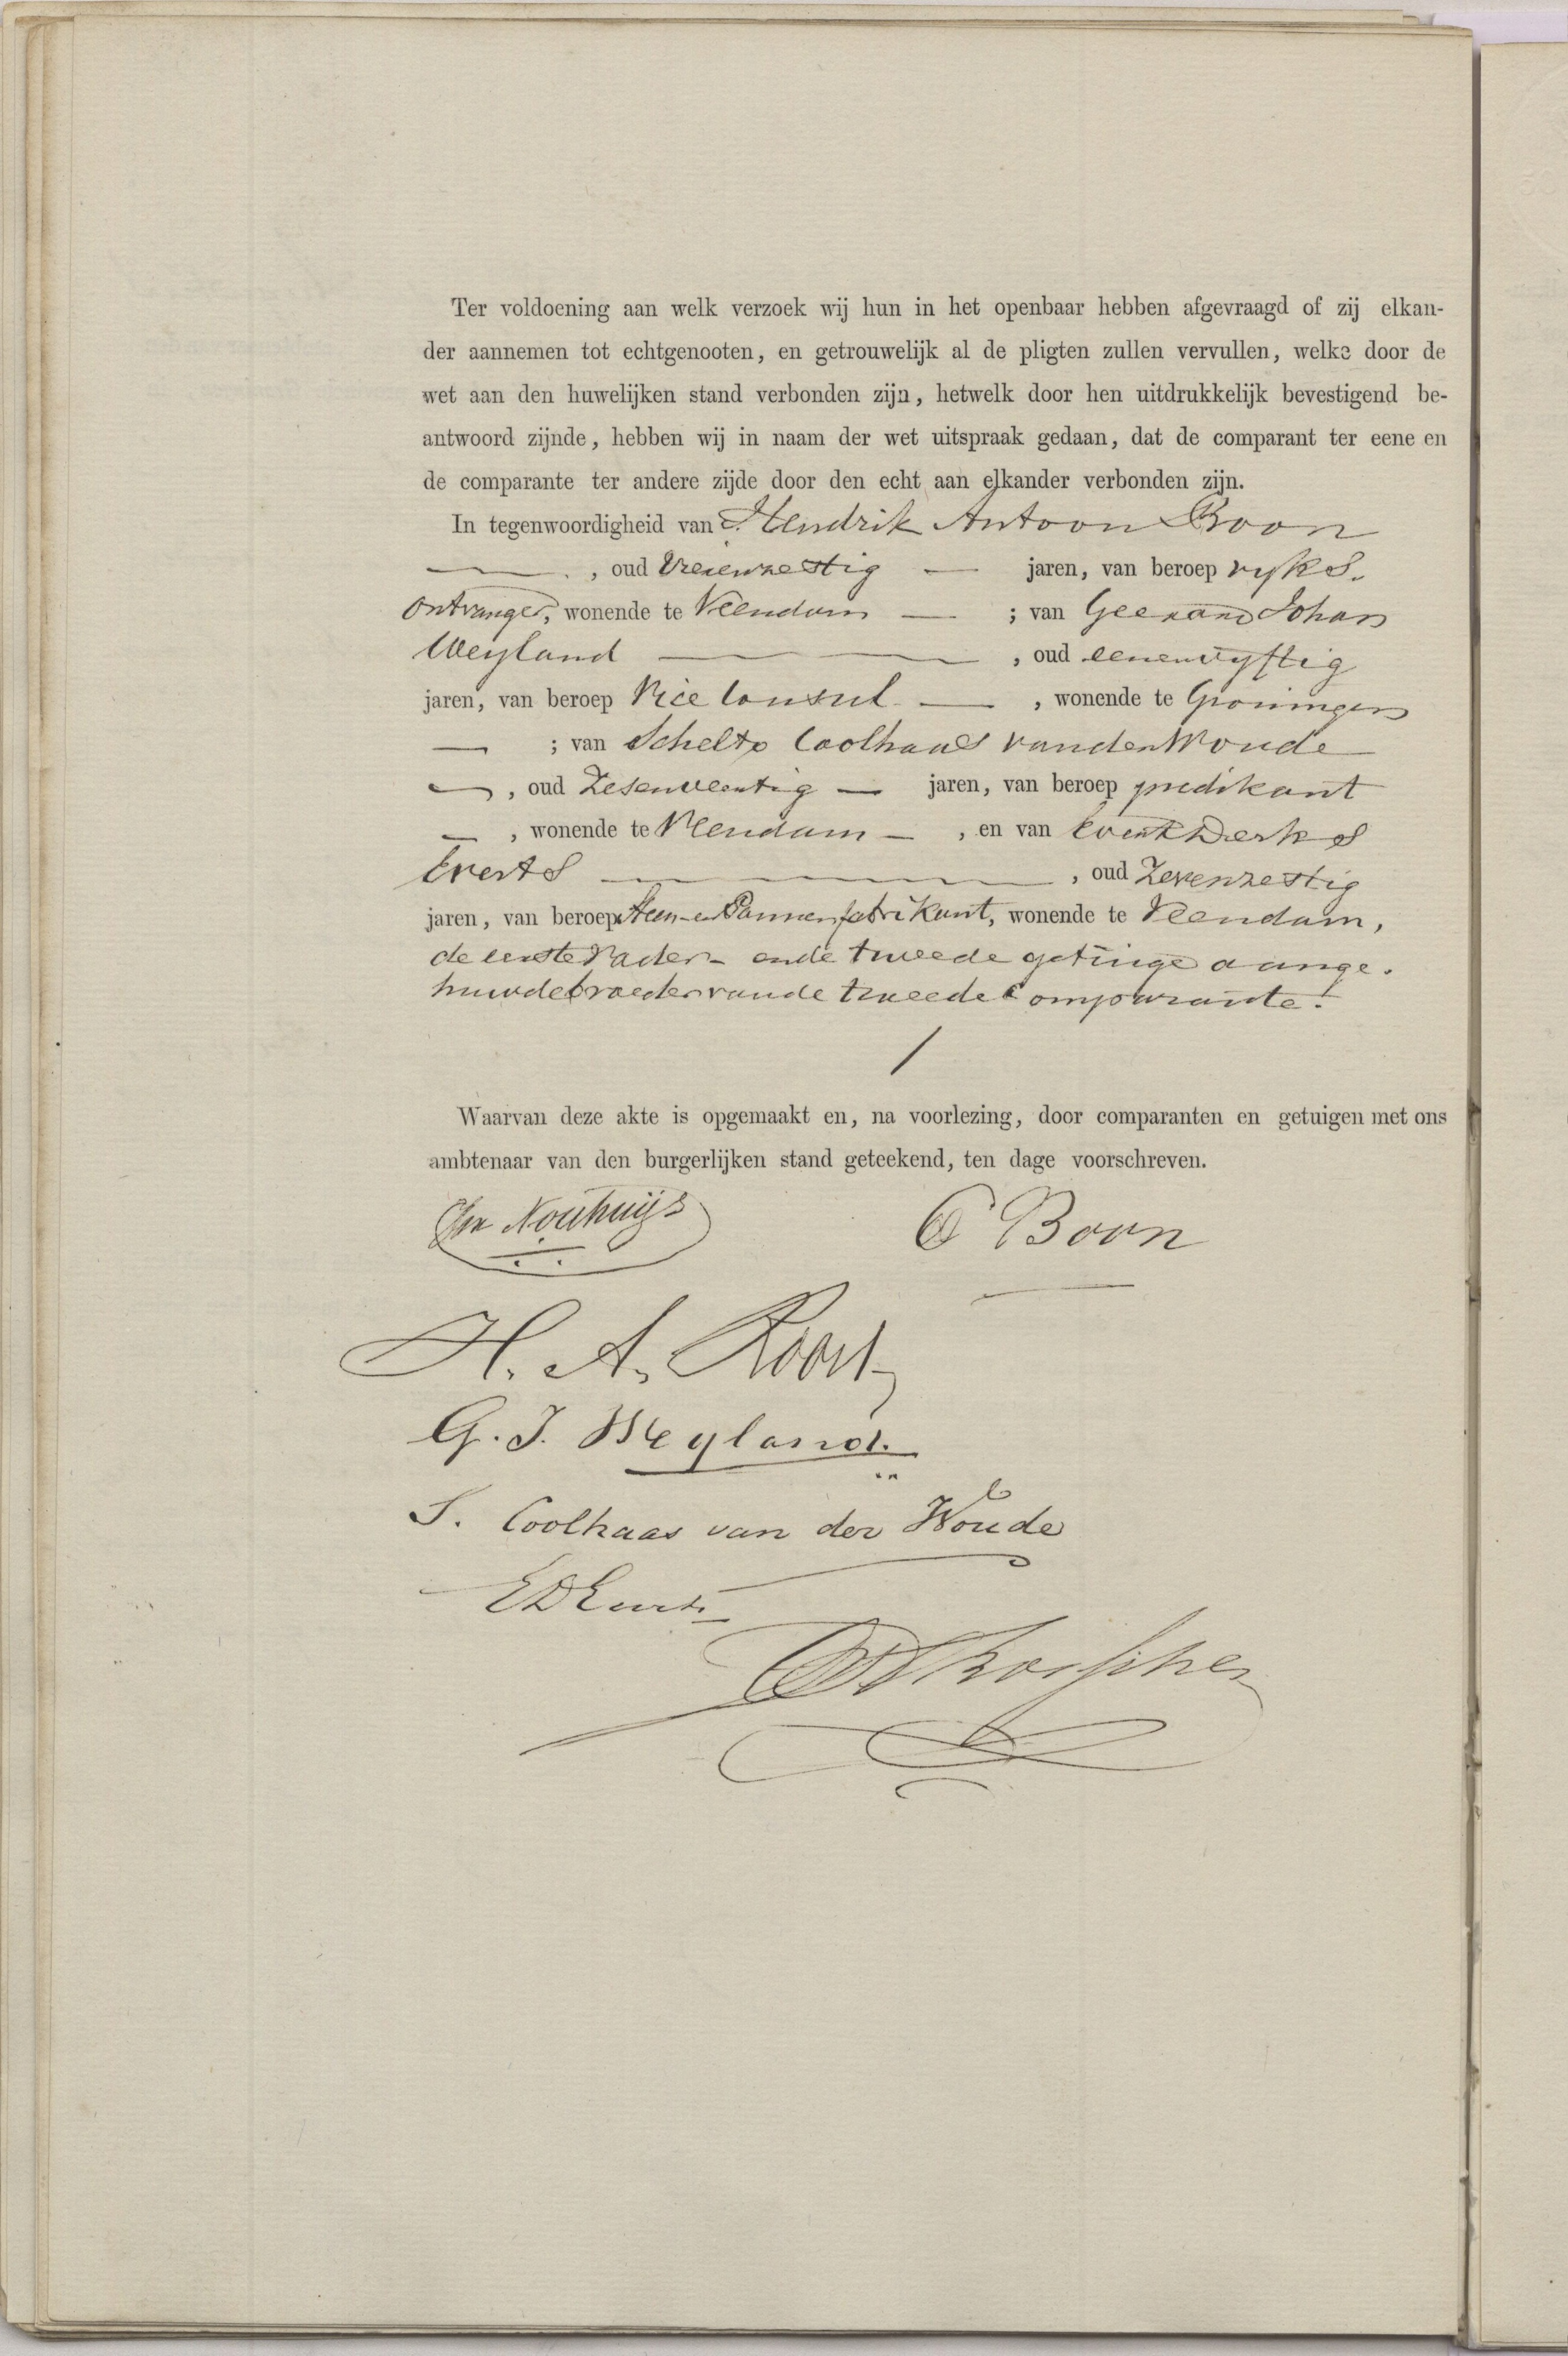 Ter voldoening aan welk verzoek wij hun in het openbaar hebben afgevraagd of zij elkan-
der aannemen tot echtgenooten, en getrouwelijk al de pligten zullen vervullen, welke door de
wet aan den huwelijken stand verbonden zijn, hetwelk door hen uitdrukkelijk bevestigend be-
antwoord zijnde, hebben wij in naam der wet uitspraak gedaan, dat de comparant ter eene en
de comparante ter andere zijde door den echt aan elkander verbonden zijn.
In tegenwoordigheid van Hendrik Antoon Boon
—, oud drieenzestig — jaren, van beroep ryks.
ontvanger, wonende te Veendam — ; van Geerard Johan
Weyland — , oud eenenvyftig
jaren, van beroep Vice Consul — , wonende te Groningen
— ; van Schelto Coolhaas van der Woude
—, oud Zesentwentig — jaren, van beroep predikant
—, wonende te Veendam — , en van Evert Derks
Everts — , oud Zevenzestig
jaren, van beroep Steen- en Pannenfabrikant, wonende te Veendam,
de eerste Vader - en de tweede getuige aange.
huwde broeder van de tweede Comparante.
Waarvan deze akte is opgemaakt en, na voorlezing, door comparanten en getuigen met ons
ambtenaar van den burgerlijken stand geteekend, ten dage voorschreven.
Nouhuijs
Boon
H. A. Boon
G. J. Weyland.
S. Coolhaas van der Woude
E D Everts